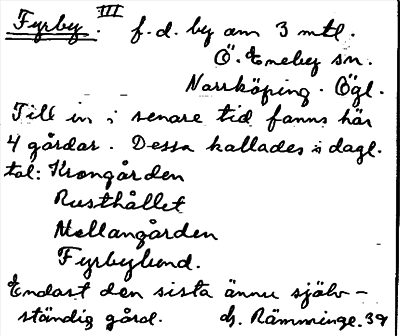 Fyrby. III f.d. by om 3 mtl.
Ö. Eneby sn.
Norrköping. Ögl.
Till in i senare tid fanns här
4 gårdar. Dessa kallades i dagl.
tal: Krongården
Rusthållet
Mellangården
Fyrbylund.
Endast den sista ännu själv-
ständig gård. Rämminge. 39